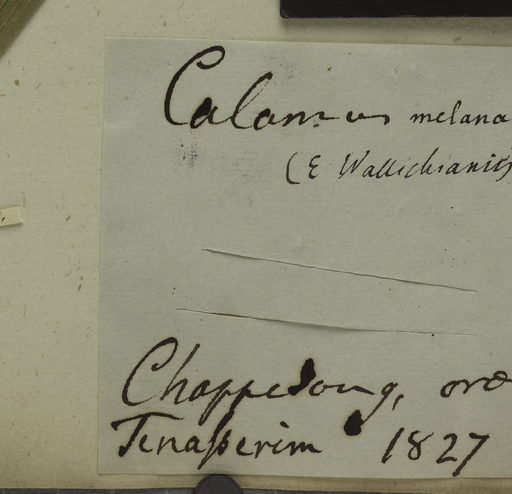 Calamus melana
(E Wallichianis
Chappedong, oræ
Tenasserim 1827